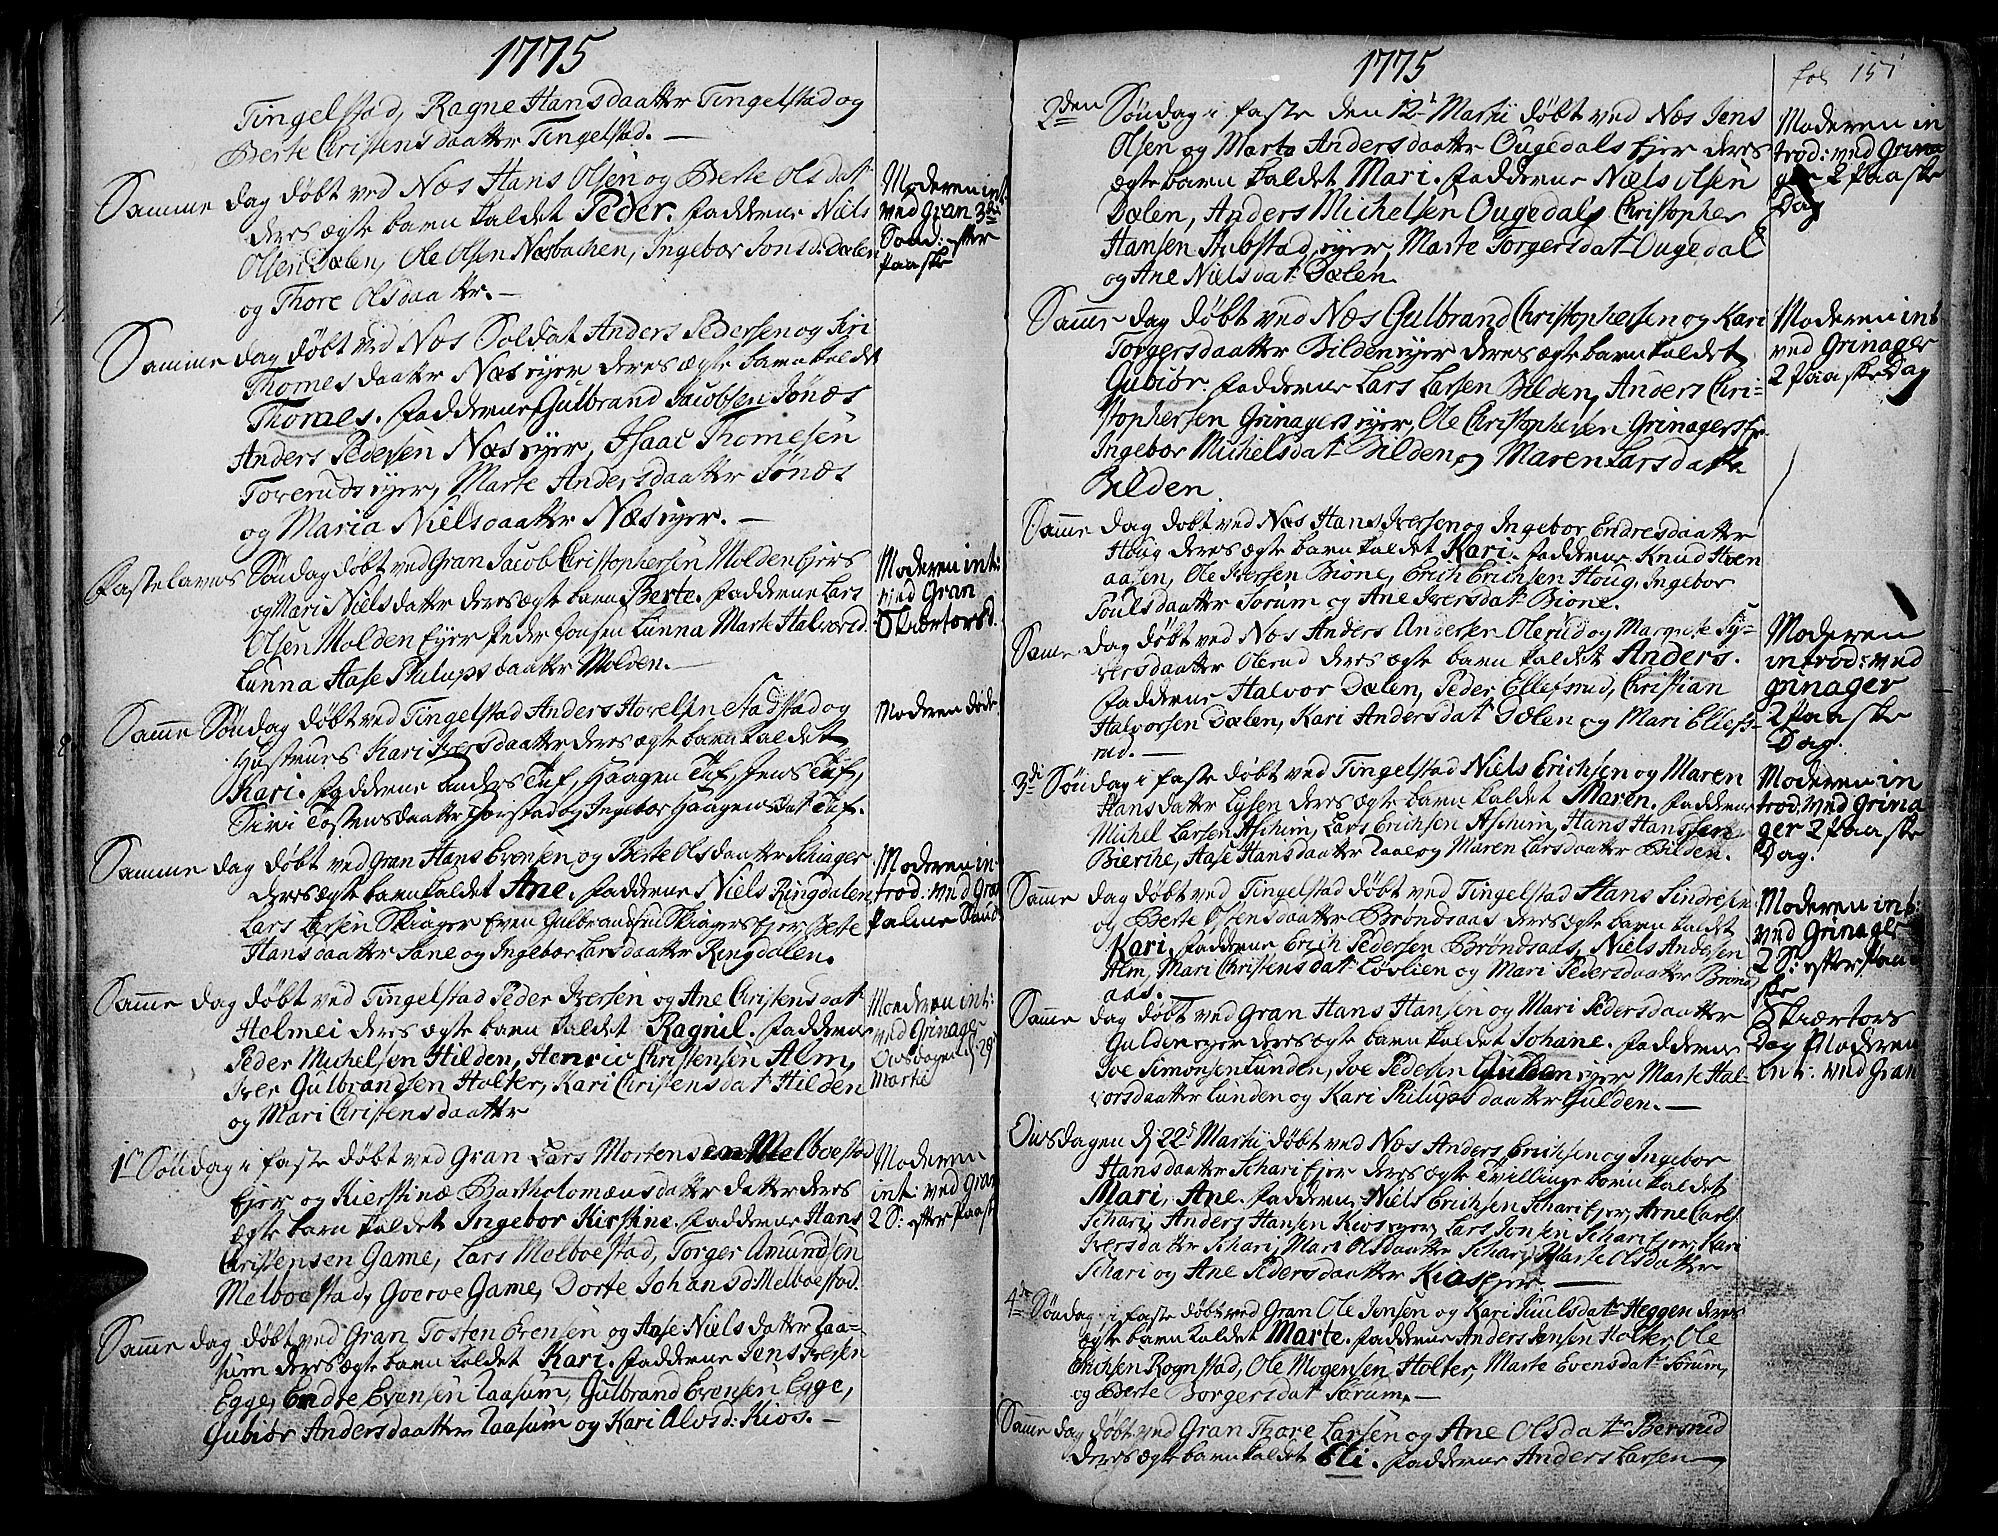 1775
Tingelstad, Ragne Hansdaatter Tingelstad og
Berte Christensdaatter Tingelstad. —
Samme dag døbt ved Næs Hans Olsen og Berte Olsdatt
deres ægte barn kaldet Peder. Fadderne Niels
Olsen Dælen, Ole Olsen Næsbachen, Ingebor Jonsd: Dælen
og Thore Olsdaatter. —
Moderen int:
ved Gran 3die
Sønd: efter
Paaske
Samme dag døbt ved Næs Soldat Anders Pedersen og Siri
Thomesdaatter Næs eyer deres ægte barn kaldet
Thomes. Fadderne Gulbrand Jacobsen Jønæs
Anders Pedersen Næs eyer, Isaac Thomesen
Toverud eyer, Marte Andersdaatter Jønæs
og Maria Nielsdaatter Næs eyer. —
Fastelavns Søndag døbt ved Gran Jacob Christophersen Molden Ejers
og Mari Nielsdatter deres ægte barn Berte. Fadderne Lars
Olsen Molden Eyer Peder Jonsen Lunna Marte Halvorsd.
Lunna Aase Philupsdaatter Molden. —
Moderen int:
ved Gran
Skiærtorsd.
Samme Søndag døbt ved Tingelstad Anders Hovelsen Stadstad og
Hustrues Kari Iversdaatter deres ægte barn kaldet
Kari. Fadderne Anders Tuf, Haagen Tuf, Jens Tuf,
Sivi Tostensdaatter Horstad og Ingebor Haagensdat Tuf.
Moderen døde
Samme dag døbt ved Gran Hans Evensen og Berte Olsdaatter Schiager
deres ægte barn kaldet Ane. Fadderne Niels Ringdalen
Lars Larsen Skiager Even Gulbrandsen Skiagers Ejer Berte
Hansdaatter Sane og Ingebor Larsdaatter Ringdalen.
Moderen in-
trod: ved Gran
Palme Sønd
Samme dag døbt ved Tingelstad Peder Iversen og Ane Christensdat
Helmei deres ægte barn kaldet Ragnil. Fadderne
Peder Michelsen Hilden, Henric Christensen Alm,
Iver Gulbrandsen Holter, Kari Christensdat Hilden
og Mari Christensdaatter
Moederen int:
ved Grinager
Onsdagen d. 29
Martii
1ste Søndag i Faste døbt ved Gran Lars Mortensen Melboestad
Ejer og Kierstinæ Bartholomæusdatter datter deres
ægte barn kaldet Ingebor Kirstine. Fadderne Hans
Christensen Game, Lars Melboestad, Torger Amundsen
Melboestad, Goeroe Game, Dorte Johansd: Melboestad.
Moderen
int: ved Gran
2 S: efter Paaske
Samme dag døbt ved Gran Tosten Evensen og Aase Nielsdatter Laa-
sum deres ægte barn kaldet Kari. Fadderne Jens Iversen
Egge, Endre Evensen Laasum, Gulbrand Evensen Egge,
Gubiør Andersdaatter Laasum og Kari Alvsd: Kios. —
1775
fol 151
2den Søndag i Faste den 12te Martii døbt ved Næs Jens
Olsen og Marta Andersdaatter Ougedals Ejer deres
ægte barn kaldet Mari. Fadderne Niels Olsen
Dælen, Anders Michelsen Ougedals Christopher
Hansen Stubstad eyer, Marte Torgersdat Ougedal
og Ane Nielsdat Dælen.
Moderen in
trod: ved Grina
ger 2 Paaske
Dag
Samme dag døbt ved Næs Gulbrand Christophersen og Kari
Torgersdaatter Bilden eyer deres ægte barn kaldet
Gubiør. Fadderne Lars Larsen Bilden, Anders Chri-
stophersen Grinagers eyer, Ole Christophersen Grinagers Ejer.
Ingebor Michelsdat Bilden og Maren Larsdatter
Bilden.
Moderen int
ved Grinager
2 Paaske Dag
Samme dag døbt ved Næs Hans Iversen og Ingebor Endresdaatter
Houg deres ægte barn kaldet Kari. Fadderne Knud Hven
aasen, Ole Iversen Bione, Erich Erichsen Houg, Ingebor
Poulsdaatter Sørum og Ane Iversdat Bione.
Same dag døbt ved Næs Anders Andersen Olerud og Margrete Sy-
versdaatter Olerud deres ægte barn kaldet Anders.
Fadderne Halvor Dælen, Peder Ellefsrud, Christian
Halvorsen Dælen, Kari Andersdat Dælen og Mari Ellefs-
rud. —
Moderen
introd: ved
grinager
2 Paaske
Dag.
3di Søndag i Faste døbt ved Tingelstad Niels Erichsen og Maren
Hansdatter Lysen deres ægte barn kaldet Maren. Fadderne
Michel Larsen Aschim, Lars Erichsen Aschim, Hans Hanssen
Bierche, Aase Hansdaatter Laae og Maren Larsdaatter Bilden.
Moderen in
trod: ved Grina
ger 2 Paaske
Dag.
Samme dag døbt ved Tingelstad døbt ved Tingelstad Hans Sindresen
og Berte Olsensdaatter Brøndsaas deres ægte barn kaldet
Kari. Fadderne Erich Pedersen Brøndsaas, Niels Andersen
Alm, Mari Christensdat Løvlien og Mari Pedersdaatter Brønd
aas. —
Moderen int:
ved Grinager
2 S: efter Paa-
ske
Samme dag døbt ved Gran Hans Hansen og Mari Pedersdaatter
Gulden eyer deres ægte barn kaldet Johane. Fadderne
Joe Simonsen Lunden, Joe Pedersen Gulden eyer Marte Hal-
vorsdaatter Lunden og Kari Philupsdaatter Gulden. —
Skiærtors
Dag Moderen
int: ved Gran
Onsdagen d 22de Martii døbt ved Næs Anders Erichsen og Ingebor
Hansdaatter Schari Ejer deres ægte Tvillinge børn kaldet
Mari, Ane. Fadderne Niels Erichsen Schari Ejer, Arne Carls.
Schari, Anders Hansen Kios eyer, Lars Jonsen Schari Ejer, Kari
Iversdatter Schari, Mari Olsdaatter Schari, Marte Olsdatter
Schari og Ane Pedersdaatter Kios Ejer —
4de Søndag i Faste døbt ved Gran Ole Jensen og Kari Poulsdatr Heggen deres
ægte barn kaldet Marte. Fadderne Anders Jensen Holter Ole
Erichsen Rognstad, Ole Mogensen Holter, Marte Evensdat Sørum,
og Berte Borgersdat Sørum. —
Samme dag døbt ved Gran Thore Larsen og Ane Olsdatr Bersrud
deres ægte barn kaldet Eli. Fadderne Anders Larsen